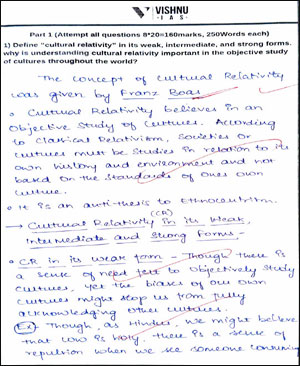 VISHNU
IAS
Part 1 (Attempt all questions 8*20=160marks, 250Words each)
1) Define "cultural relativity" in its weak, intermediate, and strong forms.
why is understanding cultural relativity important in the objective study
of cultures throughout the world?
The concept of Cultural Relativity
was given by Franz Boas
• Cultural Relativity believes in an
Objective Study of Cultures. According
to Classical Relativism, Societies or
Cultures must be Studies in relation to its
own history and environment and not
based on the Standards of Ones own
Culture.
• It is an anti-thesis to Ethnocentrism.
(CR)
→ Cultural Relativity in its Weak,
Intermediate and Strong Forms-
• CR in its weak form - Though there is
a sense of need felt to Objectively Study
Cultures, yet the biases of our own
Cultures might stop us from fully
acknowledging other cultures.
Ex: Though, as Hindus, we might believe
that Cow is holy, there is a sense of
repulsion when we see someone consuming